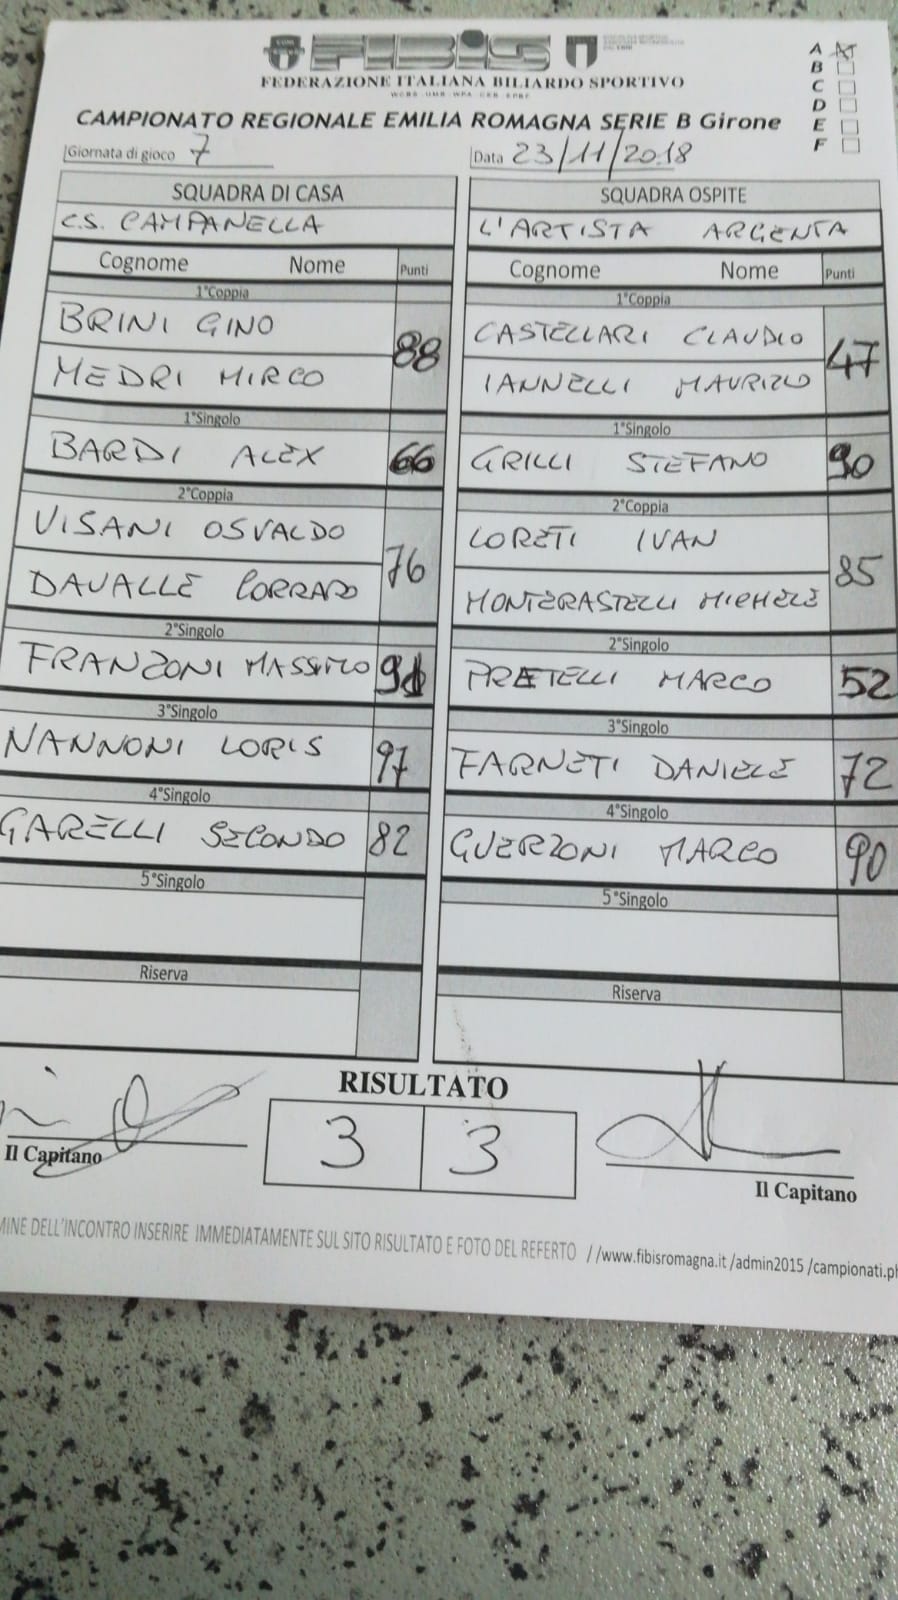 FIBIS
FEDERAZIONE ITALIANA BILIARDO SPORTIVO
CAMPIONATO REGIONALE EMILIA ROMAGNA SERIE B Girone
A X
B
C
D
E
F
Giornata di gioco 7
Data 23/11/2018
SQUADRA DI CASA
SQUADRA OSPITE
C.S. CAMPANELLA
L'ARTISTA ARGENTA
Cognome Nome Punti
Cognome Nome Punti
1°Coppia
1°Coppia
BRINI GINO
MEDRI MIRCO
88
CASTELLARI CLAUDIO
IANNELLI MAURIZIO
47
1°Singolo
1°Singolo
BARDI ALEX 66
GRILLI STEFANO 90
2°Coppia
2°Coppia
VISANI OSVALDO
DAVALLE CORRADO
76
LORETI IVAN
MONTERASTELLI MICHELE
85
2°Singolo
2°Singolo
FRANZONI MASSIMO
PRETELLI MARCO 52
3°Singolo
3°Singolo
NANNONI LORIS 97
FARNETI DANIELE 72
4°Singolo
4°Singolo
GARELLI SECONDO 82
GUERZONI MARCO 90
5°Singolo
5°Singolo
Riserva
Riserva
RISULTATO
3 3
Il Capitano
Il Capitano
DELL'INCONTRO INSERIRE IMMEDIATAMENTE SUL SITO RISULTATO E FOTO DEL REFERTO //www.fibisromagna.it /admin2015 /campionati.ph